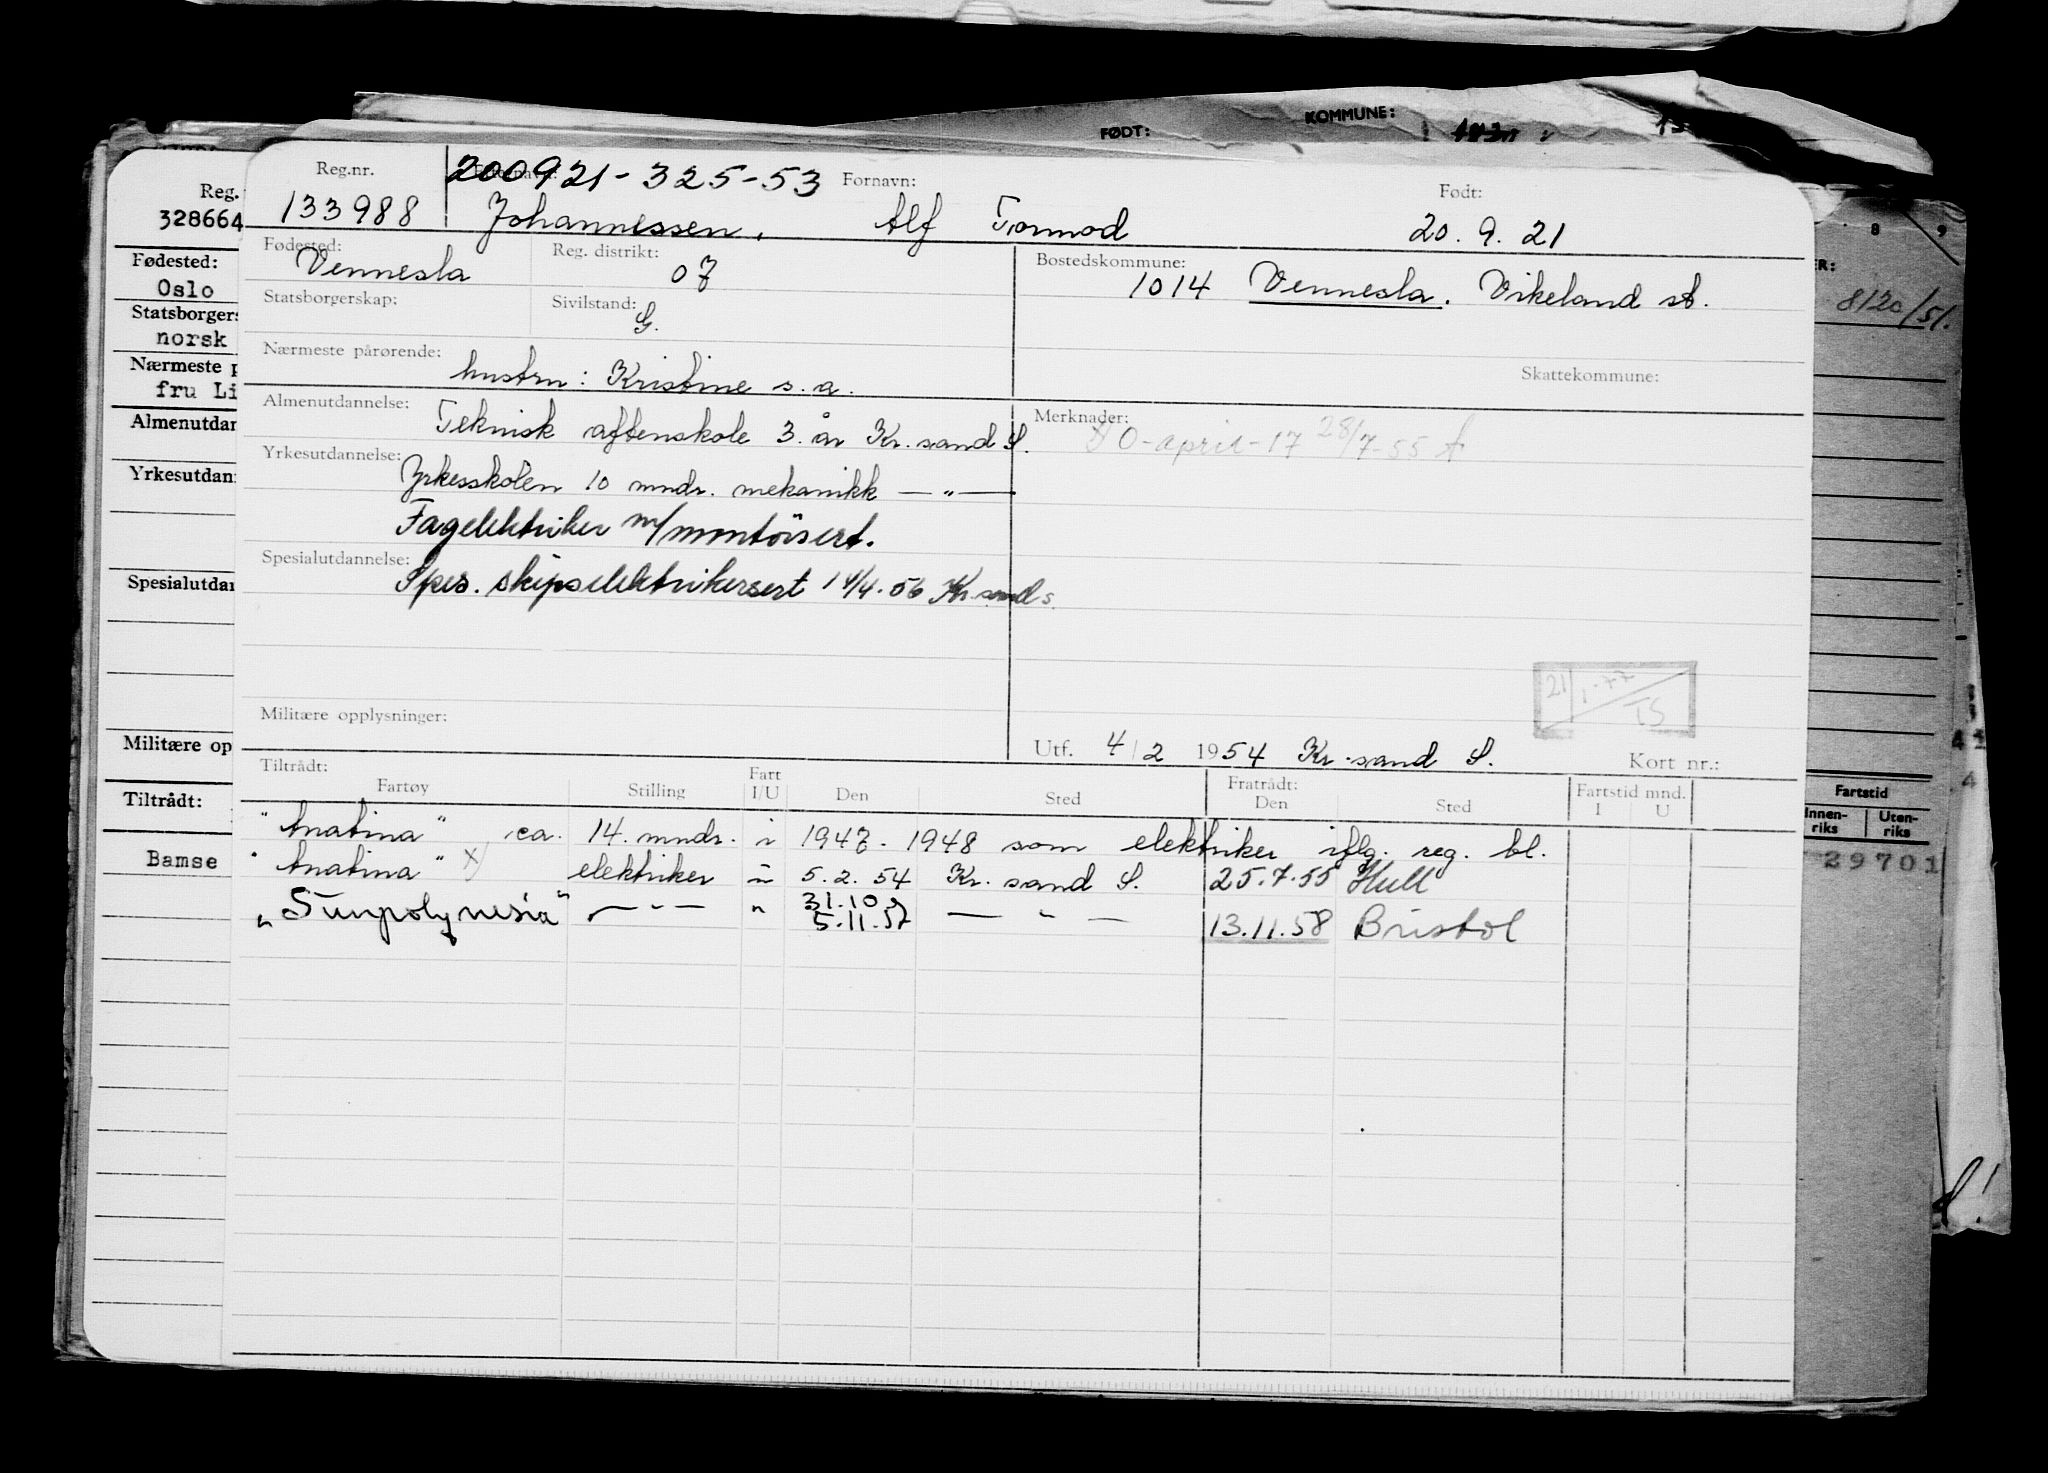 FØDT: KOMMUNE:
Reg.nr. 200921-325-53 Fornavn: Født:
133988 Johannessen, Alf Tormod 20.9.21
Fødested: Vennesla Reg. distrikt: 07 Bostedskommune: 1014 Vennesla. Vikeland st.
Statsborgerskap: Sivilstand: G.
Nærmeste pårørende: hustru: Kristine s.a. Skattekommune:
Almenutdannelse: Teknisk aftenskole 3. år Kr.sand S. Merknader: O-april-17 28/7-55
Yrkesutdannelse: Yrkesskolen 10 mndr. mekanikk — " —
Fagelektriker m/montörsert.
Spesialutdannelse: Spes. skipselektrikersert 14/4.56 Kr.sand s.
21/1-77 TS
Militære opplysninger:
Utf. 4/2 1954 Kr.sand S. Kort nr.:
Tiltrådt: Fratrådt:
Fartøy Stilling Fart I/U Den Sted Den Sted Fartstid mnd. I U
"Anatina" ca. 14. mndr. i 1947-1948 som elektriker iflg. reg. bl.
"Anatina" x/ elektriker u 5.2.54 Kr. sand S. 25.7.55 Hull
"Sunpolynesia" — " — " 31.10 5.11.57 — " — 13.11.58 Bristol
Reg.
328664
Fødested:
Oslo
Statsborgers
norsk
Nærmeste p
fru Li
Almenutdan
Yrkesutdan
Spesialutdan
Militære op
Tiltrådt:
Bamse
8 9
ER:
8120/51.
Fartstid
Innen-riks Uten-riks
29701